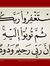 وَاسْتَغْفِرُوا رَبَّكُمْ
ثُمَّ تُوبُوا إِلَيْهِ
إِنَّ رَبِّي رَحِيمٌ وَدُودٌ